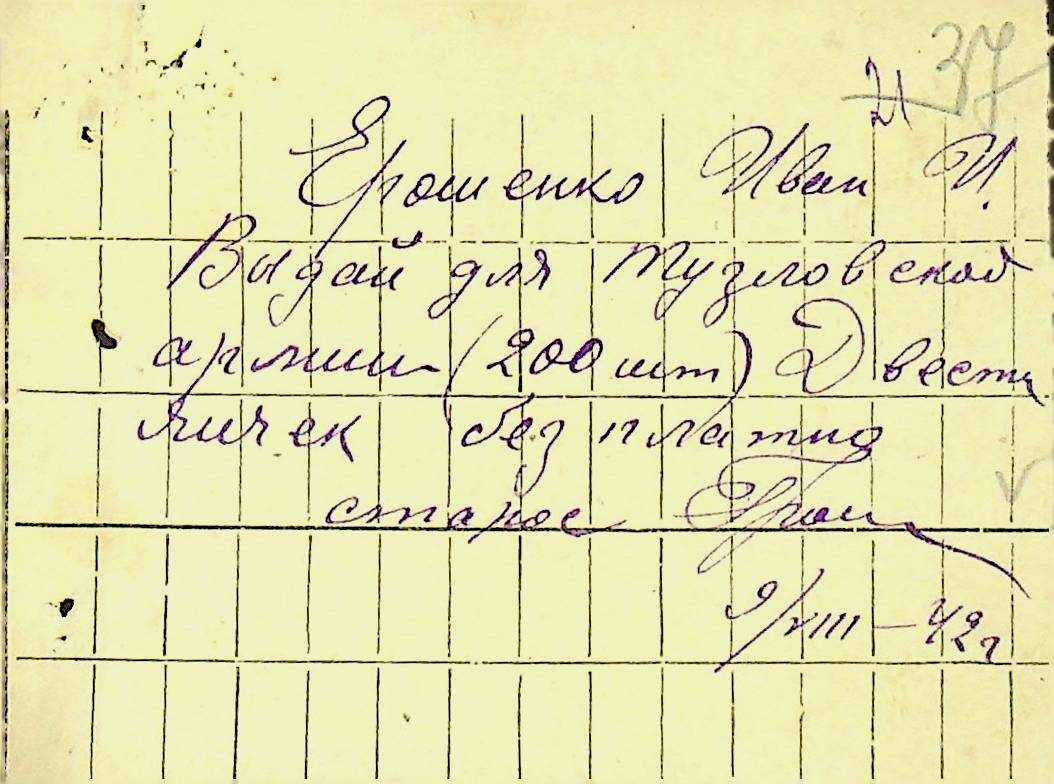 37
21
Ерошенко Иван И.
Выдай для Тузловской
армии (200 шт) Двести
яичек бесплатно
старос
9/VIII – 42 г